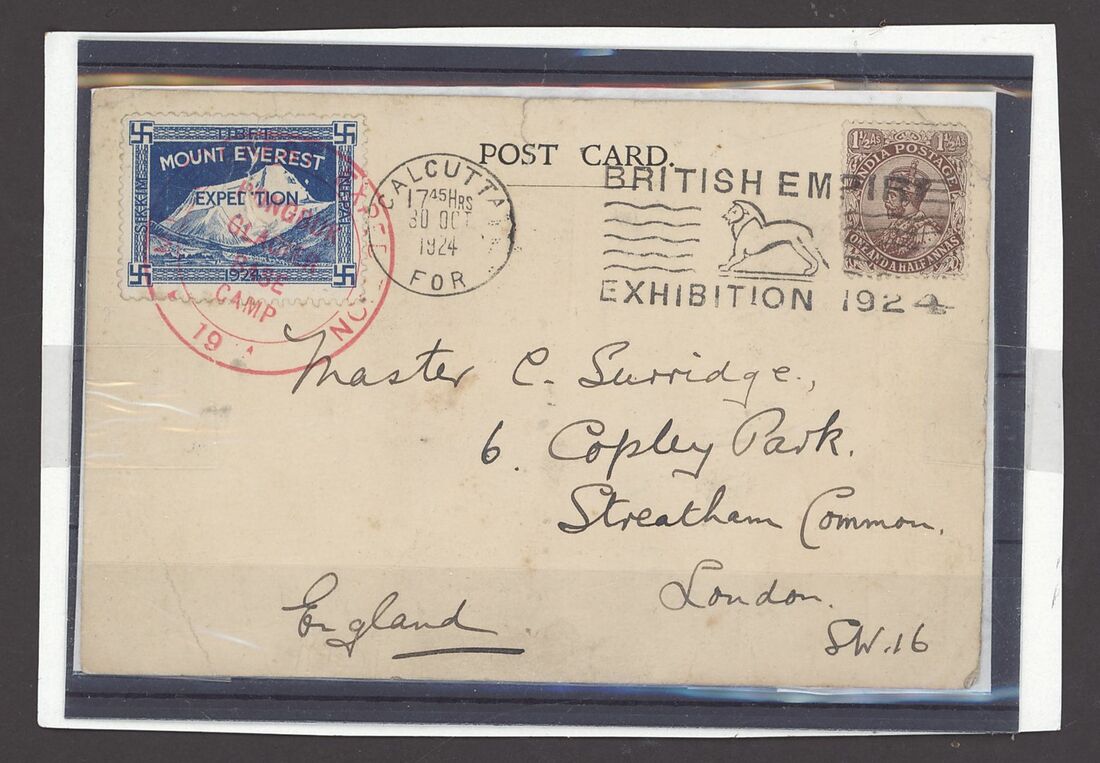 TIBET
MOUNT EVEREST
EXPEDITION
SIKKIM
NEPAL
1924
GLACIER
BASE
CAMP
19
CALCUTTA
17 45 HRS
30 OCT
1924
FOR
POST CARD.
BRITISH EMPIRE
EXHIBITION 1924
1½ AS 1½ AS
INDIA POSTAGE
ONE AND A HALF ANNAS
Master C. Surridge.,
6. Copley Park.
Streatham Common.
London.
S.W.16
England